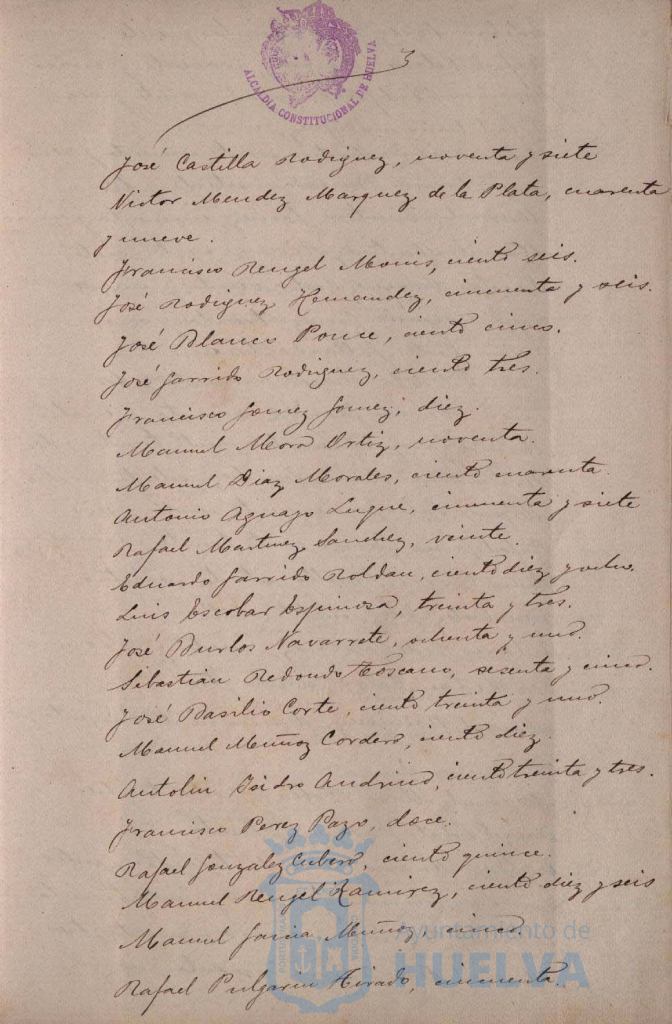 3
ALCALDÍA CONSTITUCIONAL DE HUELVA
José Castilla Rodriguez, noventa y siete
Victor Mendez Marquez de la Plata, cuarenta
y nueve.
Francisco Rengel Monis, ciento seis.
José Rodriguez Hernandez, cincuenta y seis.
José Blanco Ponce, ciento cinco.
José Garrido Rodriguez, ciento tres.
Francisco Gomez Gomez, diez.
Manuel Mora Ortiz, noventa.
Manuel Diaz Morales, ciento cuarenta.
Antonio Aguayo Luque, cincuenta y siete
Rafael Martinez Sanchez, veinte.
Eduardo Garrido Roldan, ciento diez y ocho.
Luis Escobar Espinosa, treinta y tres.
José Burlos Navarrete, ochenta y uno.
Sebastian Redondo Toscano, sesenta y cinco.
José Basilio Corte, ciento treinta y uno.
Manuel Muñoz Cordero, ciento diez.
Antolin Isidro Andrino, ciento treinta y tres.
Francisco Perez Pazo, doce.
Rafael Gonzalez Cubero, ciento quince.
Manuel Rengel Ramirez, ciento diez y seis
Manuel Garcia Muñoz, cinco.
Rafael Pulgarin Tirado, cincuenta.
Ayuntamiento de
HUELVA